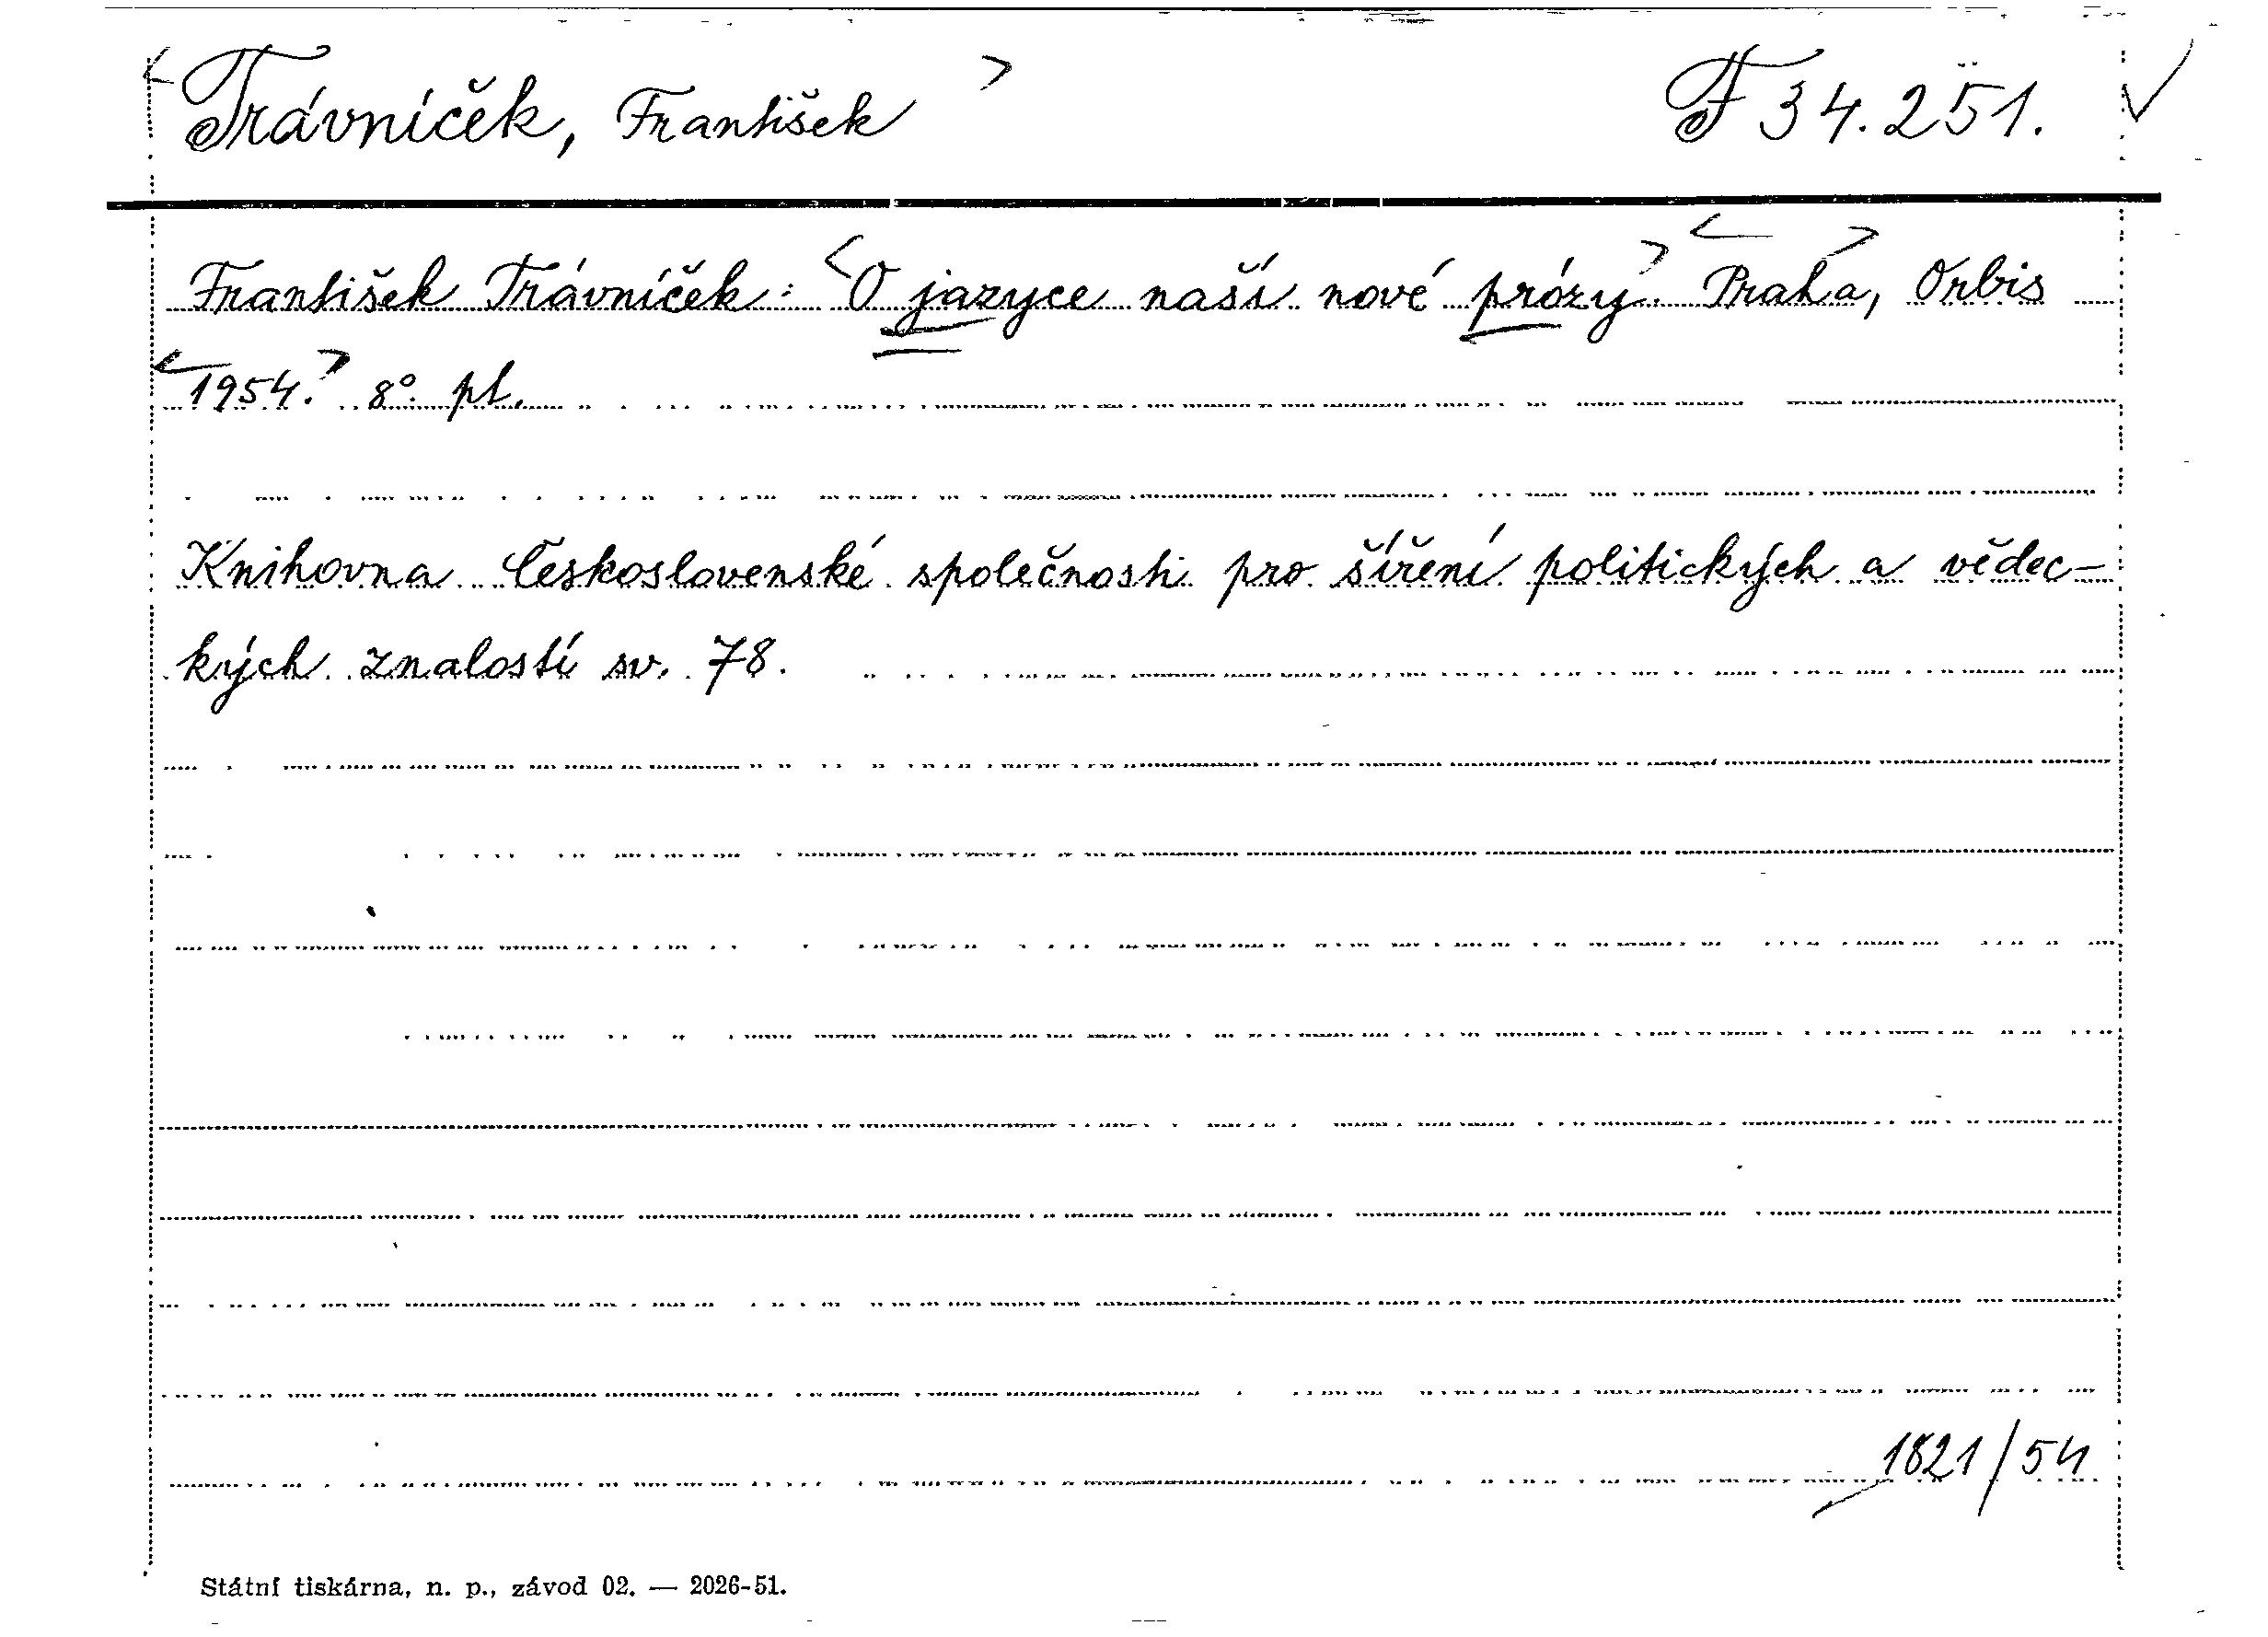 <Trávníček, František> F 34.251. ✓
František Trávníček: <O jazyce naší nové prózy.> <Praha>, Orbis
<1954.> 8°. pl.
Knihovna Československé společnosti pro šíření politických a vědec-
kých znalostí sv. 78.
1821/54
Státní tiskárna, n. p., závod 02. — 2026-51.